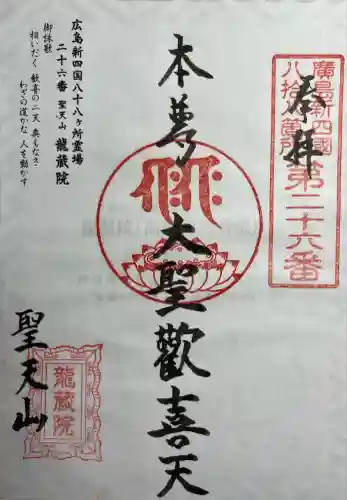 奉拝
廣島新四國
八拾八箇所
第二十六番
本尊大聖歡喜天
広島新四国八十八ヶ所霊場
二十六番 聖天山 龍蔵院
御詠歌
相いだく 歓喜の二天 奥もなき
わざの道かな 人を動かす
聖天山
龍蔵院